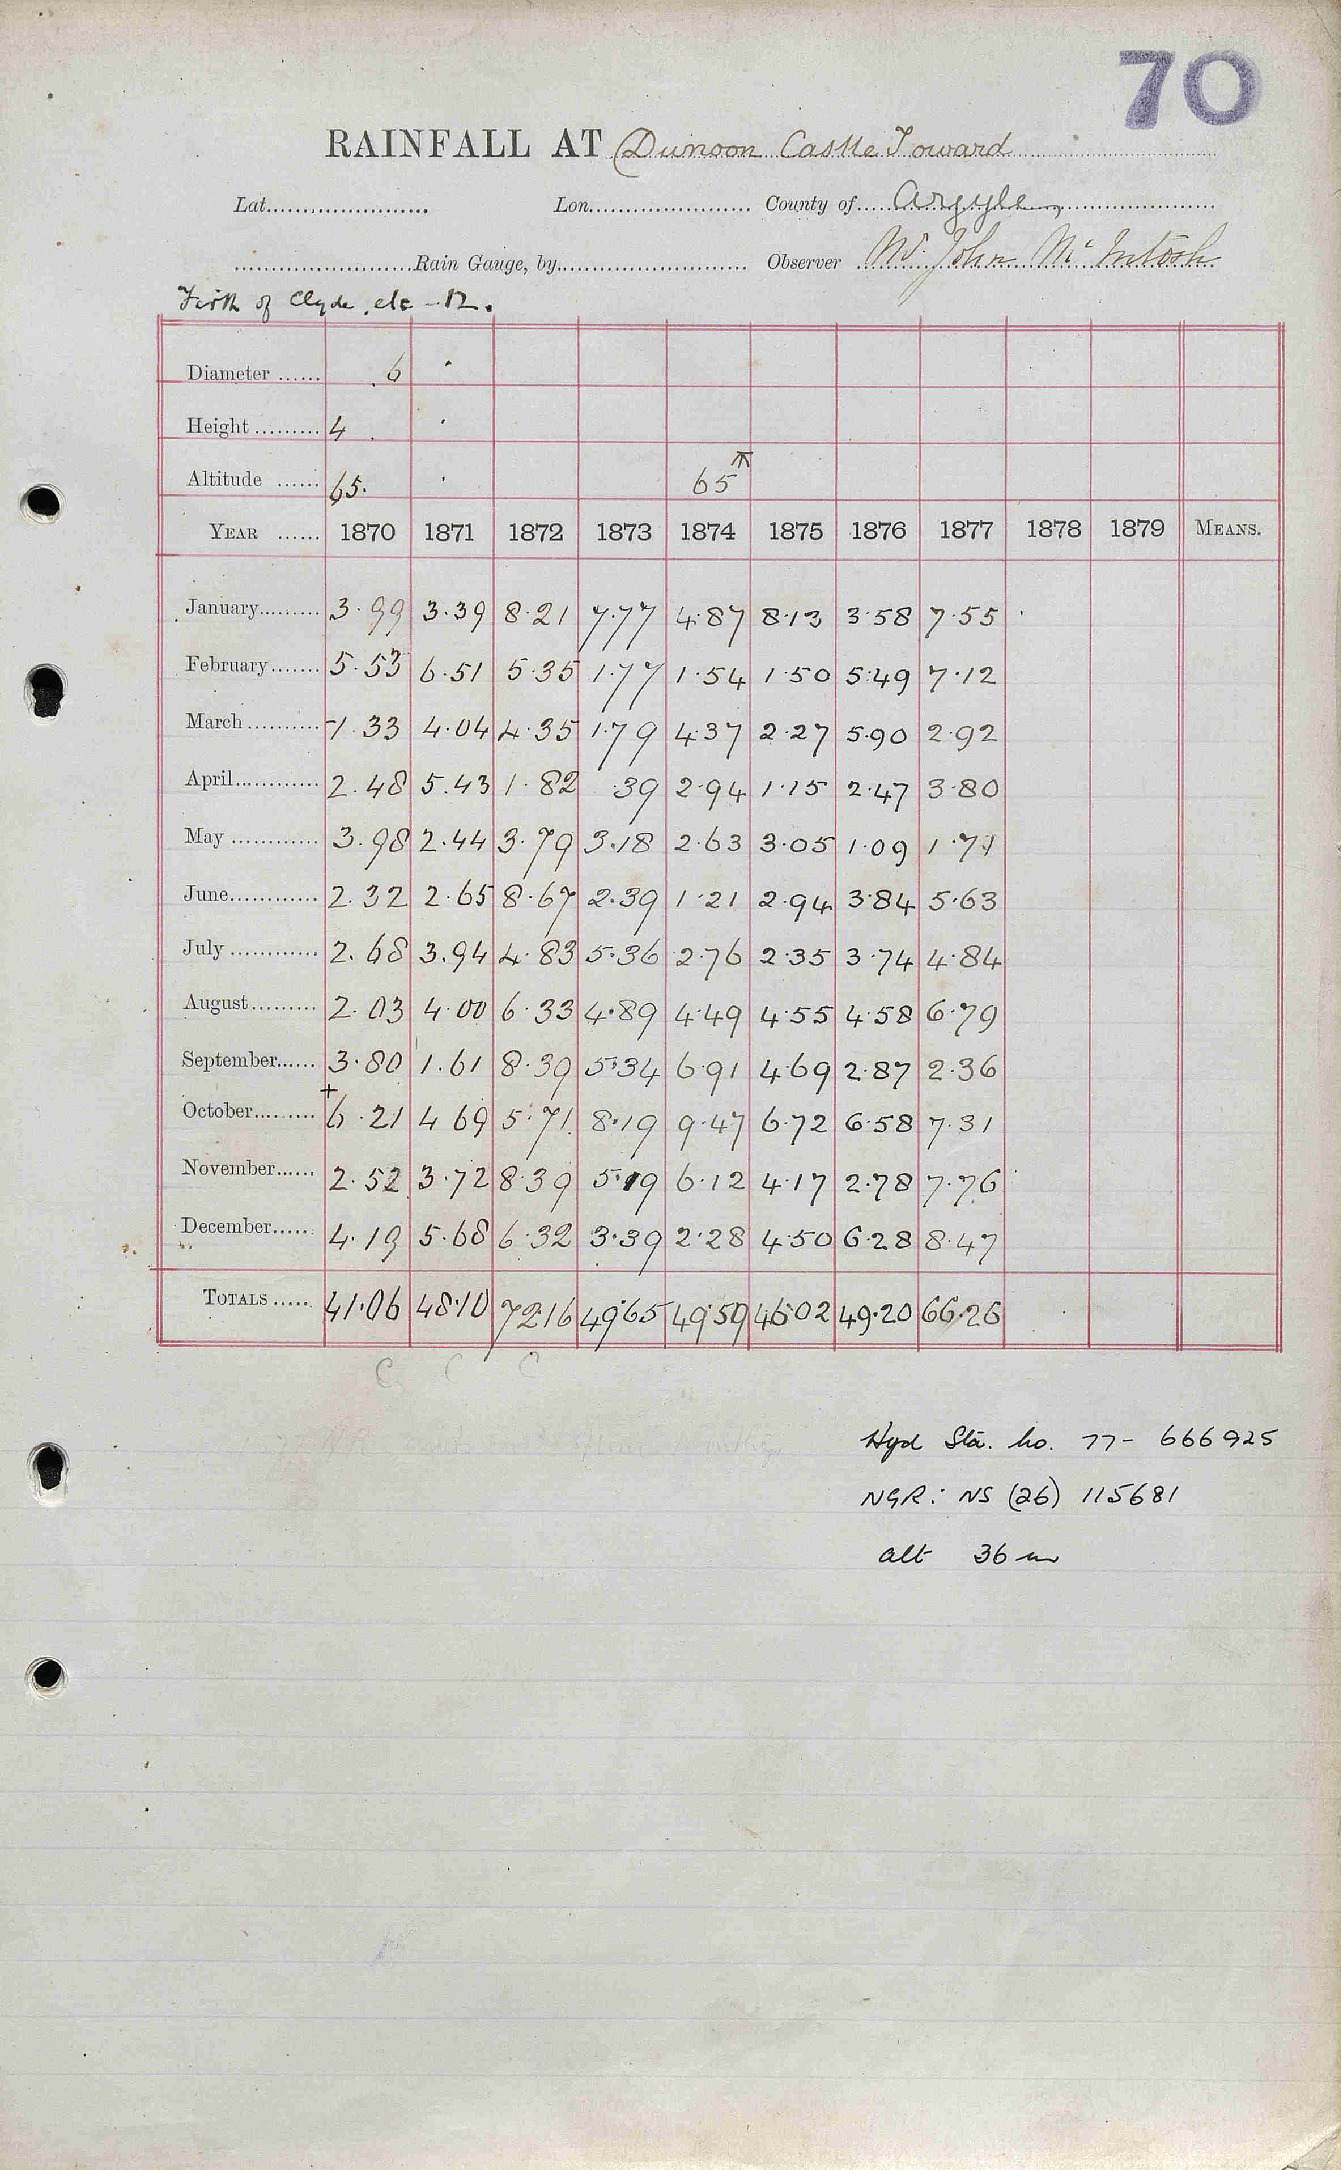 70
RAINFALL AT (Dunoon Castle Toward
Lat. Lon. County of Argyll
Rain Gauge, by Observer Mr. John McIntosh
Firth of Clyde, etc - 12.
Diameter ...... 6
Height ......... 4
Altitude ...... 65. 65
YEAR ...... 1870 1871 1872 1873 1874 1875 1876 1877 1878 1879 MEANS.
January......... 3.99 3.39 8.21 7.77 4.87 8.13 3.58 7.55
February....... 5.53 6.51 5.35 1.77 1.54 1.50 5.49 7.12
March .......... 1.33 4.04 4.35 1.79 4.37 2.27 5.90 2.92
April............ 2.48 5.43 1.82 .39 2.94 1.15 2.47 3.80
May ............ 3.98 2.44 3.79 3.18 2.63 3.05 1.09 1.71
June............ 2.32 2.65 8.67 2.39 1.21 2.94 3.84 5.63
July ............ 2.68 3.94 4.83 5.36 2.76 2.35 3.74 4.84
August......... 2.03 4.00 6.33 4.89 4.49 4.55 4.58 6.79
September...... 3.80 1.61 8.39 5.34 6.91 4.69 2.87 2.36
October......... +6.21 4 69 5.71 8.19 9.47 6.72 6.58 7.31
November...... 2.52 3.72 8.39 5.19 6.12 4.17 2.78 7.76
December...... 4.19 5.68 6.32 3.39 2.28 4.50 6.28 8.47
TOTALS ..... 41.06 48.10 72.16 49.65 49.59 46.02 49.20 66.26
C C C
Hyd Sta. no. 77- 666925
NGR: NS (26) 115681
alt 36 m